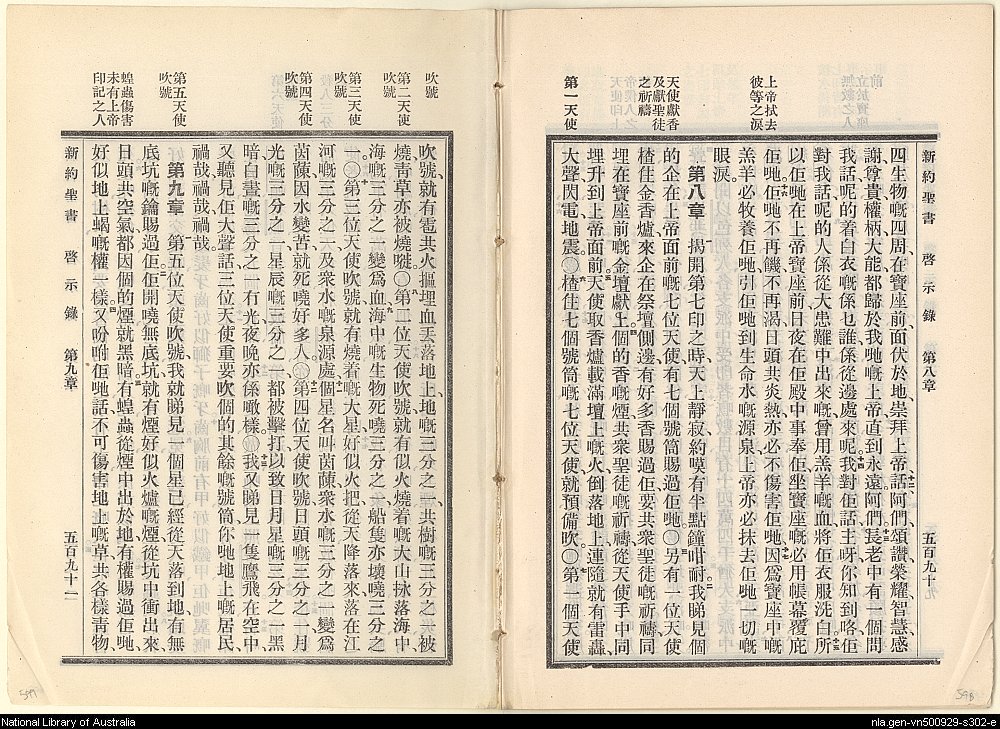 新約聖書 啓示錄 第八章
四生物嘅四周、在寶座前面伏於地、崇拜上帝、話、阿們、頌讚榮耀智慧感
謝尊貴權柄大能、都歸於我哋嘅上帝、直到永遠、阿們、長老中有一個問
我話、呢的着白衣嘅、係乜誰、係從邊處來呢。我對佢話、主呀、你知到咯、佢
對我話、呢的人係從大患難中出來嘅、曾用羔羊嘅血、將佢衣服洗白、所
以佢哋在上帝寶座前、日夜在佢殿中事奉佢、坐寶座嘅必用帳幕覆庇
佢哋、佢哋不再饑、不再渴、日頭共炎熱、亦必不傷害佢哋、因爲寶座中嘅
羔羊必牧養佢哋、引佢哋到生命水嘅源泉、上帝亦必抹去佢哋一切嘅
眼淚。
第八章 揭開第七印之時、天上靜寂、約嘆有半點鐘咁耐。我睇見個
的企在上帝面前嘅七位天使、有七個號筒賜過佢哋。〇另有一位天使
楂住金香爐、來企在祭壇側邊、有好多香賜過佢、要共衆聖徒嘅祈禱、同
埋在寶座前嘅金壇獻上。個的香嘅煙、共衆聖徒嘅祈禱、從天使手中同
埋升到上帝面前、天使取香爐、載滿壇上嘅火、倒落地上、連隨就有雷轟、
大聲、閃電、地震。〇楂住七個號筒嘅七位天使、就預備吹。〇第一個天使
上帝拭去
彼等之淚
天使獻香
及獻聖徒
之祈禱
第一天使
吹號、就有雹共火、摳埋血、丟落地上、地嘅三分之一、共樹嘅三分之一、被
燒、靑草亦被燒嘥。〇第二位天使吹號、就有似火燒着嘅大山、拯落海中、
海嘅三分之一變爲血、海中嘅生物死嘵三分之一、船隻亦壞嘵三分之
一。〇第三位天使吹號、就有燒着嘅大星、好似火把、從天降落來、落在江
河嘅三分之一、及衆水嘅泉源處、個星名叫茵蔯、衆水嘅三分之一、變爲
茵蔯、因水變苦、就死嘵好多人。〇第四位天使吹號、日頭嘅三分之一、月
光嘅三分之一、星辰嘅三分之一、都被擊打、以致日月星嘅三分之一黑
暗、白晝嘅三分之一冇光、夜晚亦係噉樣。〇我又睇見一隻鷹、飛在空中、
又聽見佢大聲話、三位天使重要吹個的其餘嘅號筒、你哋地上嘅居民、
禍哉、禍哉、禍哉。
第九章 第五位天使吹號、我就睇見一個星、已經從天落到地、有無
底坑嘅鑰賜過佢、佢開嘵無底坑、就有煙好似火爐嘅煙、從坑中衝出來、
日頭共空氣、都因個的煙就黑暗、有蝗蟲從煙中出於地、有權賜過佢哋、
好似地上蝎嘅權一樣。又吩咐佢哋話、不可傷害地上嘅草、共各樣靑物、
新約聖書 啓示錄 第九章
吹號
第二天使
吹號
第三天使
吹號
第四天使
吹號
第五天使
吹號
蝗蟲傷害
未有上帝
印記之人
National Library of Australia
nla.gen-vn500929-s302-e